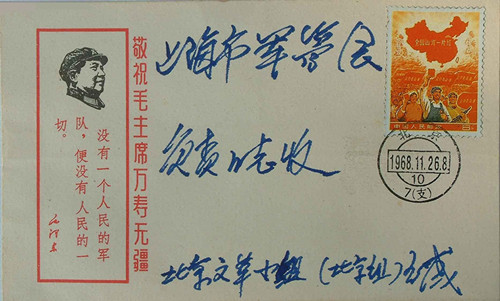 敬祝毛主席万寿无疆
没有一个人民的军
队，便没有人民的一
切。
毛泽东
上海市军管会
负责同志收
北京文革小组（北京组）
全国山河一片红
中国人民邮政
8
北京
1968.11.26.8
10
7(支)